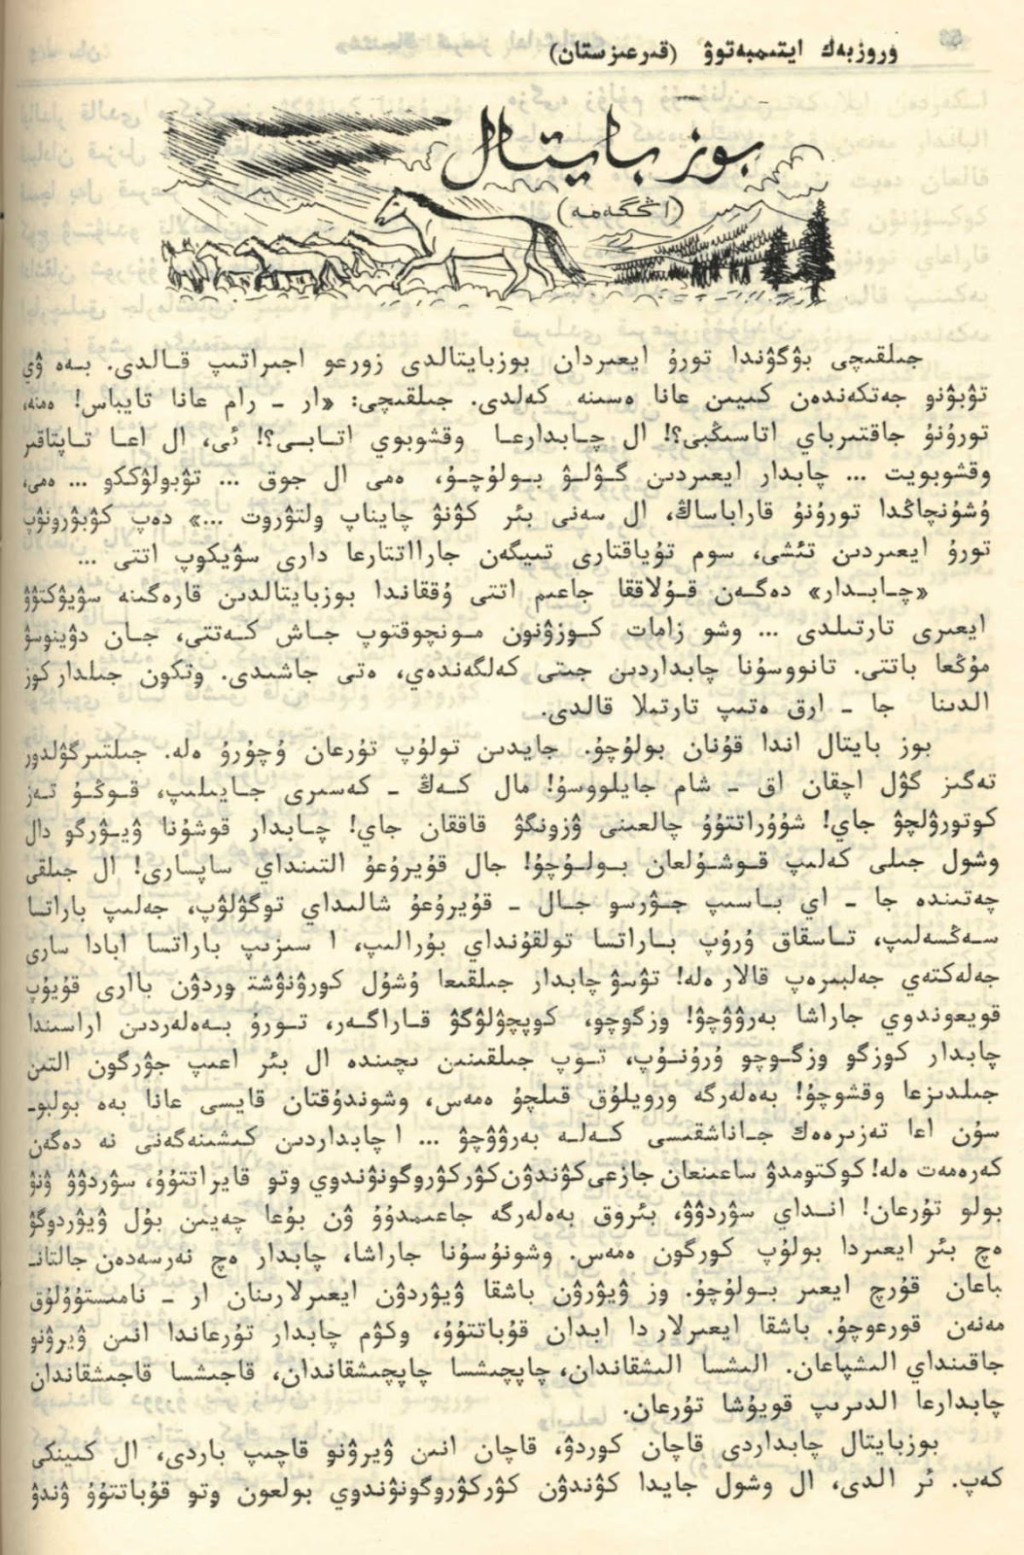 وروزبەك ايتىمبەتوۋ (قىرعىزستان)
بوز بايتال
(اڭگەمە)
جىلقىچى بۇگۇندا تورۇ ايعىردان بوزبايتالدى زورعو اجىراتىپ قالدى. بەە ۋي
تۇبۇنو جەتكەندەن كىيىن عانا ەسىنە كەلدى. جىلقىچى: «ار ـ رام عانا تايباس! ەمنە،
تورۇنۇ جاقتىرباي اتاسىڭبى؟! ال چابدارعا وقشوبوي اتابى؟! ئى، ال اعا تاپتاقىر
وقشوبويت ... چابدار ايعىردىن گۇلۇ بولۇچۇ، ەمى ال جوق ... تۇبولۇككو ... ەمى،
ۇشۇنچاڭدا تورۇنۇ قاراباساڭ، ال سەنى بئر كۇنۇ چايناپ ولتۇروت ...» دەپ كۇبۇرونۇپ
تورۇ ايعىردىن تئشى، سوم تۇياقتارى تىيگەن جارااتتارعا دارى سۇيكوپ اتتى ...
«چابدار» دەگەن قۇلاققا جاعىم اتتى ۇققاندا بوزبايتالدىن قارەگىنە سۇيۇكتۇۇ
ايعىرى تارتىلدى ... وشو زامات كوزۇنون مونچوقتوپ جاش كەتتى، جان دۇينوسۇ
مۇڭعا باتتى. تانووسۇنا چابداردىن جىتى كەلگەندەي، ەتى جاشىدى. وتكون جىلدار كوز
الدىنا جا ـ ارق ەتىپ تارتىلا قالدى.
بوز بايتال اندا قۇنان بولۇچۇ. جايدىن تولۇپ تۇرعان ۇچۇرۇ ەلە. جىلتىرگۇلدور
تەگىز گۇل اچقان اق ـ شام جايلووسۇ! مال كەڭ ـ كەسىرى جايىلىپ، قوڭۇ تەز
كوتورۇلچۇ جاي! شۇۇراتتۇۇ چالعىنى ۇزونگۇ قاققان جاي! چابدار قوشۇنا ۇيۇرگو دال
وشول جىلى كەلىپ قوشۇلعان بولۇچۇ! جال قۇيرۇعۇ التىنداي ساپسارى! ال جىلقى
چەتىندە جا ـ اي باسىپ جۇرسو جال ـ قۇيرۇعۇ شالىداي توگۇلۇپ، جەلىپ باراتا
سەڭسەلىپ، تاسقاق ۇرۇپ باراتسا تولقۇنداي بۇرالىپ، ا سىزىپ باراتسا ابادا سارى
جەلەكتەي جەلبىرەپ قالار ەلە! تۇسۇ چابدار جىلقىعا ۇشۇل كورۇنۇشت وردۇن باارى قۇيۇپ
قويعوندوي جاراشا بەرۇۇچۇ! وزگوچو، كوپچۇلۇگۇ قاراگەر، تورۇ بەەلەردىن اراسىندا
چابدار كوزگو وزگوچو ۇرۇنۇپ، توپ جىلقىنىن ىچىندە ال بئر اعىپ جۇرگون التىن
جىلدىزعا وقشوچۇ! بەەلەرگە ورويلۇق قىلچۇ ەمەس، وشوندۇقتان قايسى عانا بەە بولبوـ
سۇن اعا تەزىرەەك جاناشقىسى كەلە بەرۇۇچۇ ... ا چابداردىن كىشىنەگەنى نە دەگەن
كەرەمەت ەلە! كوكتومدۇ ساعىنعان جازعى كۇندۇن كۇركۇروگونۇندوي وتو قايراتتۇۇ، سۇردۇۇ ۇنۇ
بولو تۇرعان! انداي سۇردۇۇ، بئروق بەەلەرگە جاعىمدۇۇ ۇن بۇعا چەيىن بۇل ۇيۇردوگۇ
ەچ بئر ايعىردا بولۇپ كورگون ەمەس. وشونۇسۇنا جاراشا، چابدار ەچ نەرسەدەن جالتانـ
باعان قۇرچ ايعىر بولۇچۇ. وز ۇيۇرۇن باشقا ۇيۇردۇن ايعىرلارىنان ار ـ نامىستۇۇلۇق
مەنەن قورعوچۇ. باشقا ايعىرلار دا ابدان قۇباتتۇۇ، وكۇم چابدار تۇرعاندا انىن ۇيرۇنو
جاقىنداي الىشپاعان. الىشسا الىشقاندان، چاپچىشسا چاپچىشقاندان، قاجىشسا قاجىشقاندان
چابدارعا الدىرىپ قويۇشا تۇرعان.
بوزبايتال چابداردى قاچان كوردۇ، قاچان انىن ۇيرۇنو قاچىپ باردى، ال كىينكى
كەپ. ئر الدى، ال وشول جايدا كۇندۇن كۇركۇروگونۇندوي بولعون وتو قۇباتتۇۇ ۇندۇ